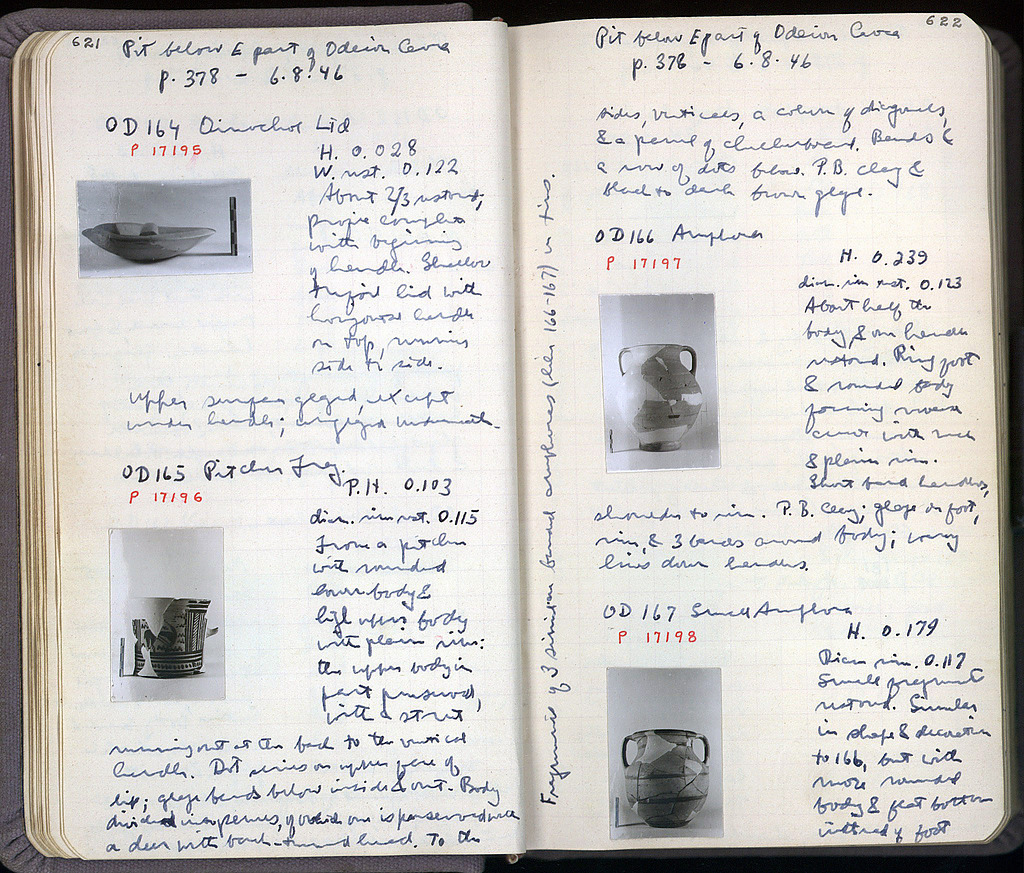 621
Pit below E part of Odeion Cavea
p. 378 - 6.8.46
OD 164 Oinochoe Lid
P 17195
H. 0.028
W. rest. 0.122
About 2/3 restored,
profile complete
with beginning
of handle. Shallow
lid with
horizontal handle
on top, running
side to side.
Upper surface glazed, except
under handle; unglazed underneath.
OD 165 Pitcher Frag.
P 17196
P.H. 0.103
diam. rim rest. 0.115
From a pitcher
with rounded
lower body &
high upper body
with plain rim:
the upper body in
part preserved,
with a strut
running out at the back to the vertical
handle. Dot series on upper face of
lip; glaze bands below inside & out. Body
divided in panels, of which one is preserved with
a deer with back-turned head. To the
622
Pit below E part of Odeion Cavea
p. 378 - 6.8.46
sides, verticals, a column of diagonals,
& a panel of checkerboard. Bands &
a row of dots below. P.B. clay &
black to dark brown glaze.
OD 166 Amphora
P 17197
H. 0.239
diam. rim rest. 0.123
About half the
body, & one handle
restored. Ring foot
& rounded body
forming reverse
curve with neck
& plain rim.
Short band handles,
shoulder to rim. P.B. clay; glaze on foot,
rim, & 3 bands around body; wavy
lines down handles.
OD 167 Small Amphora
P 17198
H. 0.179
Diam rim. 0.117
Small fragments
restored. Similar
in shape & decoration
to 166, but with
more rounded
body & flat bottom
instead of foot
Fragments of 3 similar banded amphoras (like 166-167) in tins.